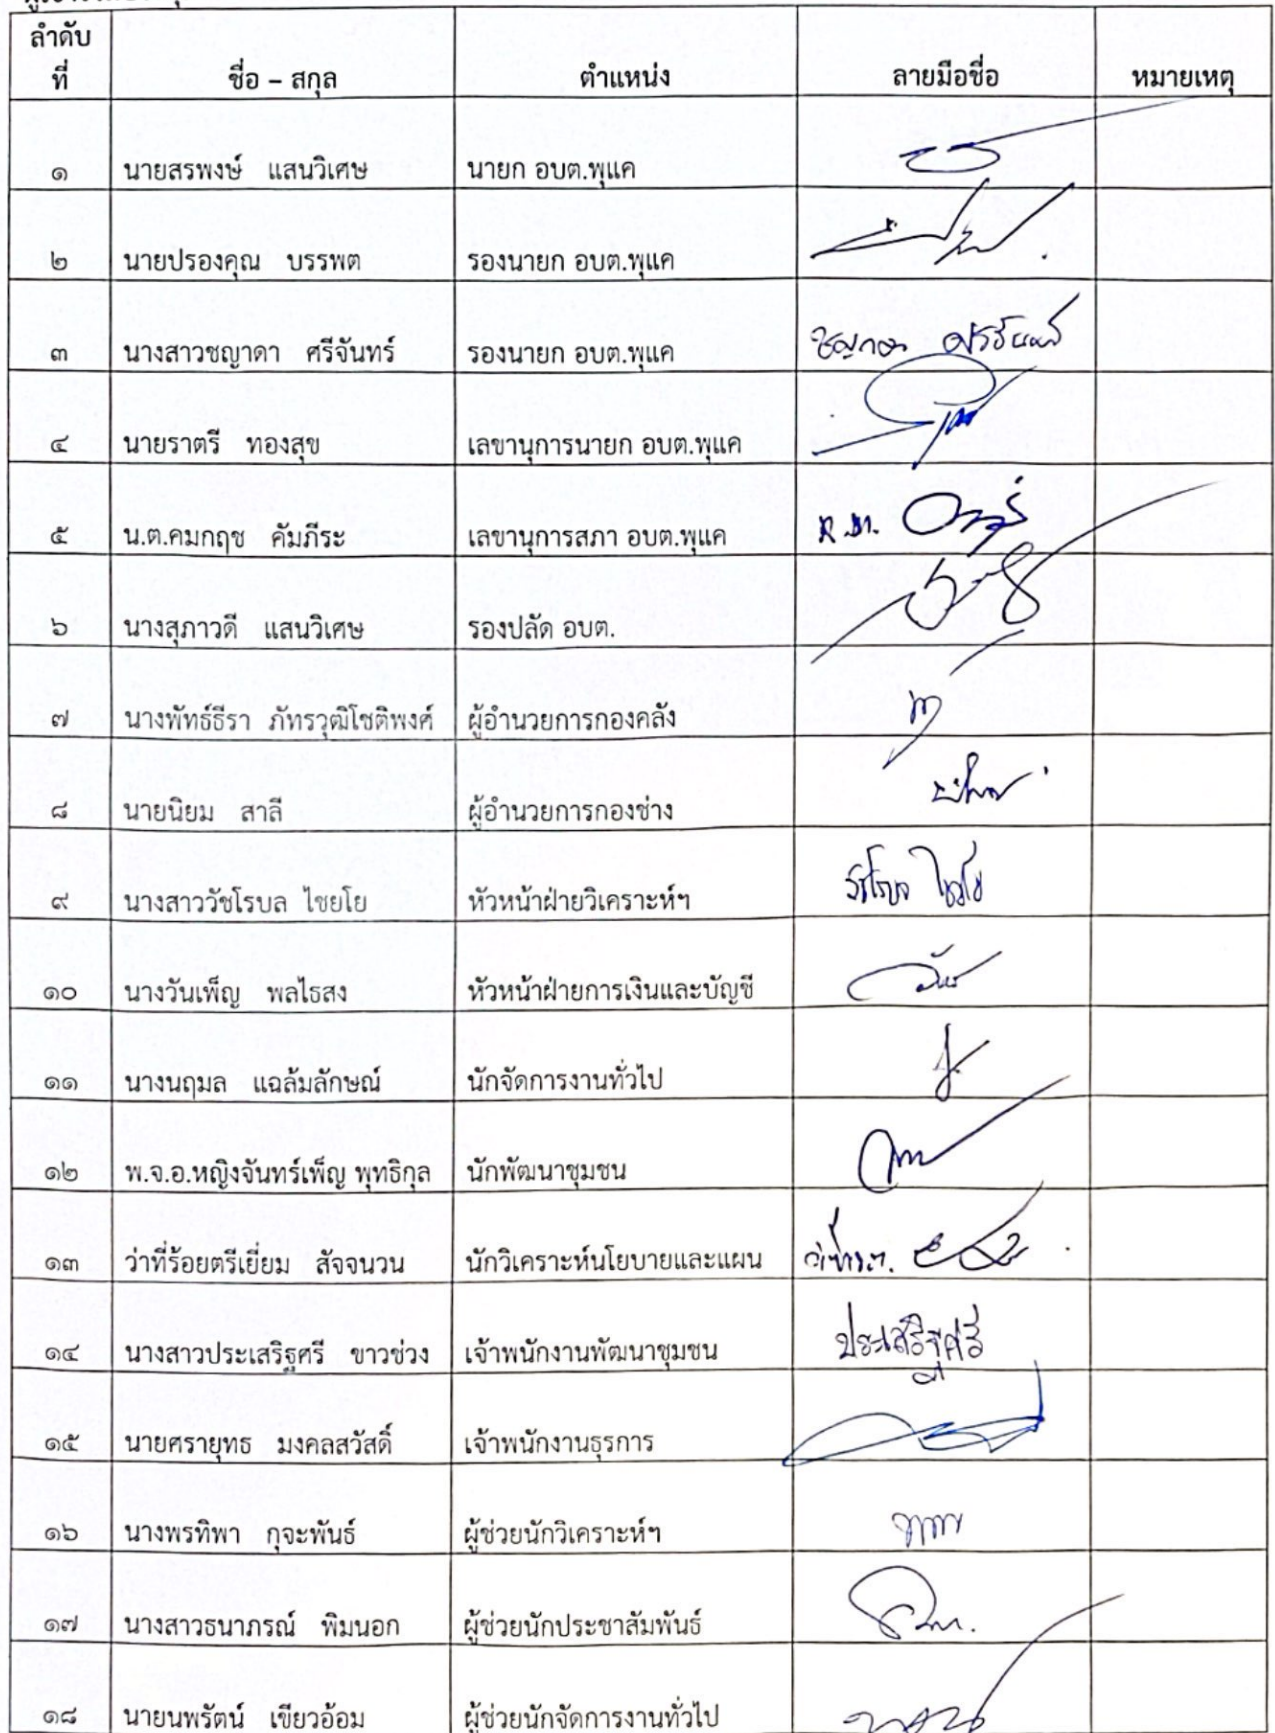 ลำดับ
ที่ ชื่อ – สกุล ตำแหน่ง ลายมือชื่อ หมายเหตุ
๑ นายสรพงษ์ แสนวิเศษ นายก อบต.พุแค
๒ นายปรองคุณ บรรพต รองนายก อบต.พุแค
๓ นางสาวชญาดา ศรีจันทร์ รองนายก อบต.พุแค ชญาดา ศรีจันทร์
๔ นายราตรี ทองสุข เลขานุการนายก อบต.พุแค
๕ น.ต.คมกฤช คัมภีระ เลขานุการสภา อบต.พุแค
๖ นางสุภาวดี แสนวิเศษ รองปลัด อบต.
๗ นางพัทธ์ธีรา ภัทรวุฒิโชติพงศ์ ผู้อำนวยการกองคลัง
๘ นายนิยม สาลี ผู้อำนวยการกองช่าง
๙ นางสาววัชโรบล ไชยโย หัวหน้าฝ่ายวิเคราะห์ฯ วัชโรบล ไชยโย
๑๐ นางวันเพ็ญ พลไธสง หัวหน้าฝ่ายการเงินและบัญชี
๑๑ นางนฤมล แฉล้มลักษณ์ นักจัดการงานทั่วไป
๑๒ พ.จ.อ.หญิงจันทร์เพ็ญ พุทธิกุล นักพัฒนาชุมชน
๑๓ ว่าที่ร้อยตรีเยี่ยม สัจจนวน นักวิเคราะห์นโยบายและแผน ว่าที่ร.ต.
๑๔ นางสาวประเสริฐศรี ขาวช่วง เจ้าพนักงานพัฒนาชุมชน ประเสริฐศรี
๑๕ นายศรายุทธ มงคลสวัสดิ์ เจ้าพนักงานธุรการ
๑๖ นางพรทิพา กุจะพันธ์ ผู้ช่วยนักวิเคราะห์ฯ
๑๗ นางสาวธนาภรณ์ พิมนอก ผู้ช่วยนักประชาสัมพันธ์
๑๘ นายนพรัตน์ เขียวอ้อม ผู้ช่วยนักจัดการงานทั่วไป